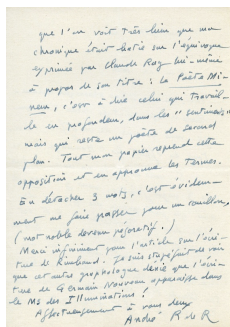 que l'on voit très bien que ma
chronique était bâtie sur l'équivoque
exprimée par Claude Roy lui-même
à propos de son titre : le Poète Mi-
neur, c'est à dire celui qui travail-
le en profondeur, dans les "
mais qui reste un poète de second
plan. Tout mon papier reprend cette
opposition et en approuve les termes.
En détacher 3 mots, c'est évidem-
ment me faire passer pour un couillon,
(mot noble devenu péjoratif.)
Merci infiniment pour l'article sur l'écri-
ture de Rimbaud. Je suis stupéfait de voir
que cet autre graphologue décide que l'écri-
ture de Germain Nouveau apparaisse dans
le MS des Illuminations !
Affectueusement à vous deux
André R de R